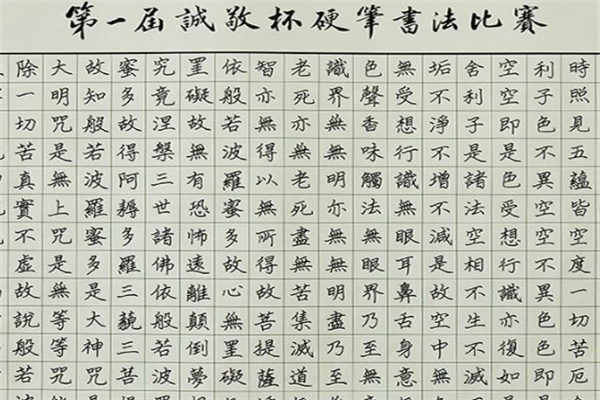 第一屆誠敬杯硬筆書法比賽
時照見五蘊皆空度一切苦厄
利子色不異空空不異色色即
空空即是色受想行識亦復如
舍利子是諸法空相不生不滅
垢不淨不增不減是故空中無
無受想行識無眼耳鼻舌身意
色聲香味觸法無眼界乃至無
識界無無明亦無無明盡乃至
老死亦無老死盡無苦集滅道
智亦無得以無所得故菩提薩
依般若波羅蜜多故心無罣礙
罣礙故無有恐怖遠離顛倒夢
究竟涅槃三世諸佛依般若波
蜜多故得阿耨多羅三藐三菩
故知般若波羅蜜多是大神咒
大明咒是無上咒是無等等咒
除一切苦真實不虛故說般若